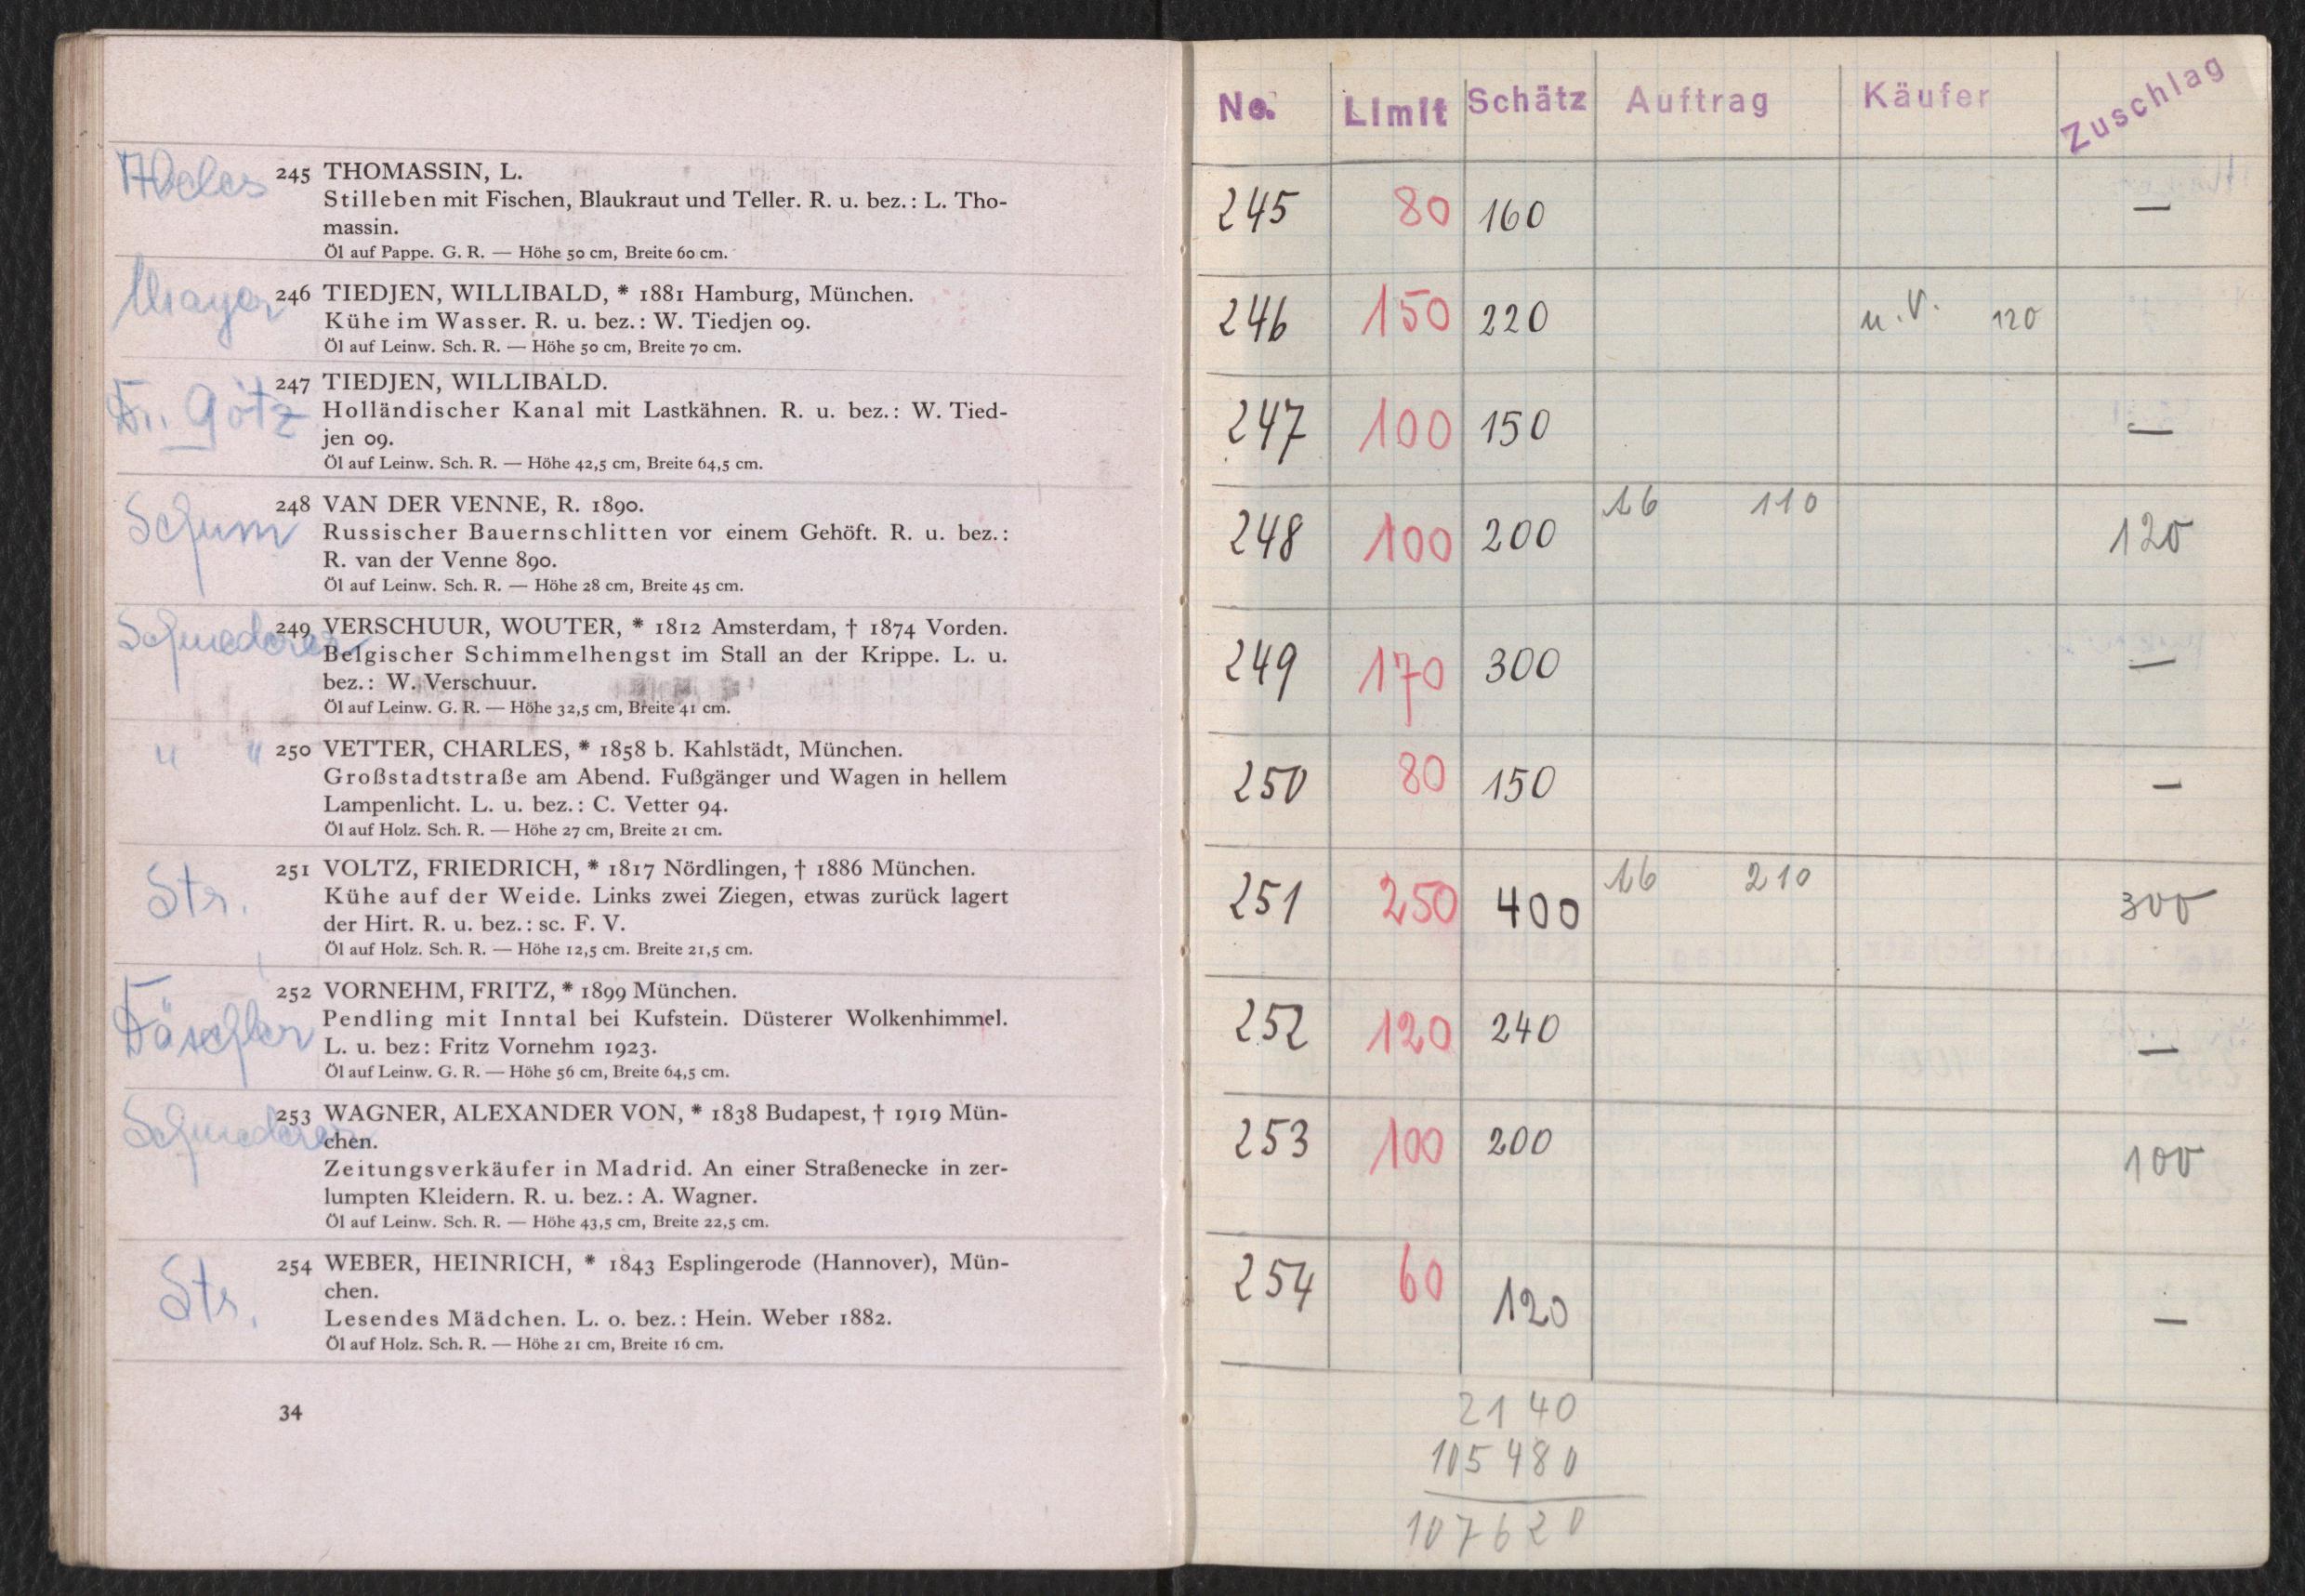 Adeles
245 THOMASSIN, L.
Stilleben mit Fischen, Blaukraut und Teller. R. u. bez.: L. Tho-
massin.
Öl auf Pappe. G. R. — Höhe 50 cm, Breite 60 cm.
Mayer
246 TIEDJEN, WILLIBALD, * 1881 Hamburg, München.
Kühe im Wasser. R. u. bez.: W. Tiedjen 09.
Öl auf Leinw. Sch. R. — Höhe 50 cm, Breite 70 cm.
Götz
247 TIEDJEN, WILLIBALD.
Holländischer Kanal mit Lastkähnen. R. u. bez.: W. Tied-
jen 09.
Öl auf Leinw. Sch. R. — Höhe 42,5 cm, Breite 64,5 cm.
Schum
248 VAN DER VENNE, R. 1890.
Russischer Bauernschlitten vor einem Gehöft. R. u. bez.:
R. van der Venne 890.
Öl auf Leinw. Sch. R. — Höhe 28 cm, Breite 45 cm.
Schmederer
249 VERSCHUUR, WOUTER, * 1812 Amsterdam, † 1874 Vorden.
Belgischer Schimmelhengst im Stall an der Krippe. L. u.
bez.: W. Verschuur.
Öl auf Leinw. G. R. — Höhe 32,5 cm, Breite 41 cm.
" "
250 VETTER, CHARLES, * 1858 b. Kahlstädt, München.
Großstadtstraße am Abend. Fußgänger und Wagen in hellem
Lampenlicht. L. u. bez.: C. Vetter 94.
Öl auf Holz. Sch. R. — Höhe 27 cm, Breite 21 cm.
Str.
251 VOLTZ, FRIEDRICH, * 1817 Nördlingen, † 1886 München.
Kühe auf der Weide. Links zwei Ziegen, etwas zurück lagert
der Hirt. R. u. bez.: sc. F. V.
Öl auf Holz. Sch. R. — Höhe 12,5 cm. Breite 21,5 cm.
Däschler
252 VORNEHM, FRITZ, * 1899 München.
Pendling mit Inntal bei Kufstein. Düsterer Wolkenhimmel.
L. u. bez: Fritz Vornehm 1923.
Öl auf Leinw. G. R. — Höhe 56 cm, Breite 64,5 cm.
Schmederer
253 WAGNER, ALEXANDER VON, * 1838 Budapest, † 1919 Mün-
chen.
Zeitungsverkäufer in Madrid. An einer Straßenecke in zer-
lumpten Kleidern. R. u. bez.: A. Wagner.
Öl auf Leinw. Sch. R. — Höhe 43,5 cm, Breite 22,5 cm.
Str.
254 WEBER, HEINRICH, * 1843 Esplingerode (Hannover), Mün-
chen.
Lesendes Mädchen. L. o. bez.: Hein. Weber 1882.
Öl auf Holz. Sch. R. — Höhe 21 cm, Breite 16 cm.
34
No. Limit Schätz Auftrag Käufer Zuschlag
245 80 160 —
246 150 220 u. V. 120
247 100 150 —
248 100 200 16 110 120
249 170 300 —
250 80 150 —
251 250 400 16 210 300
252 120 240 —
253 100 200 100
254 60 120 —
2140
105480
107620